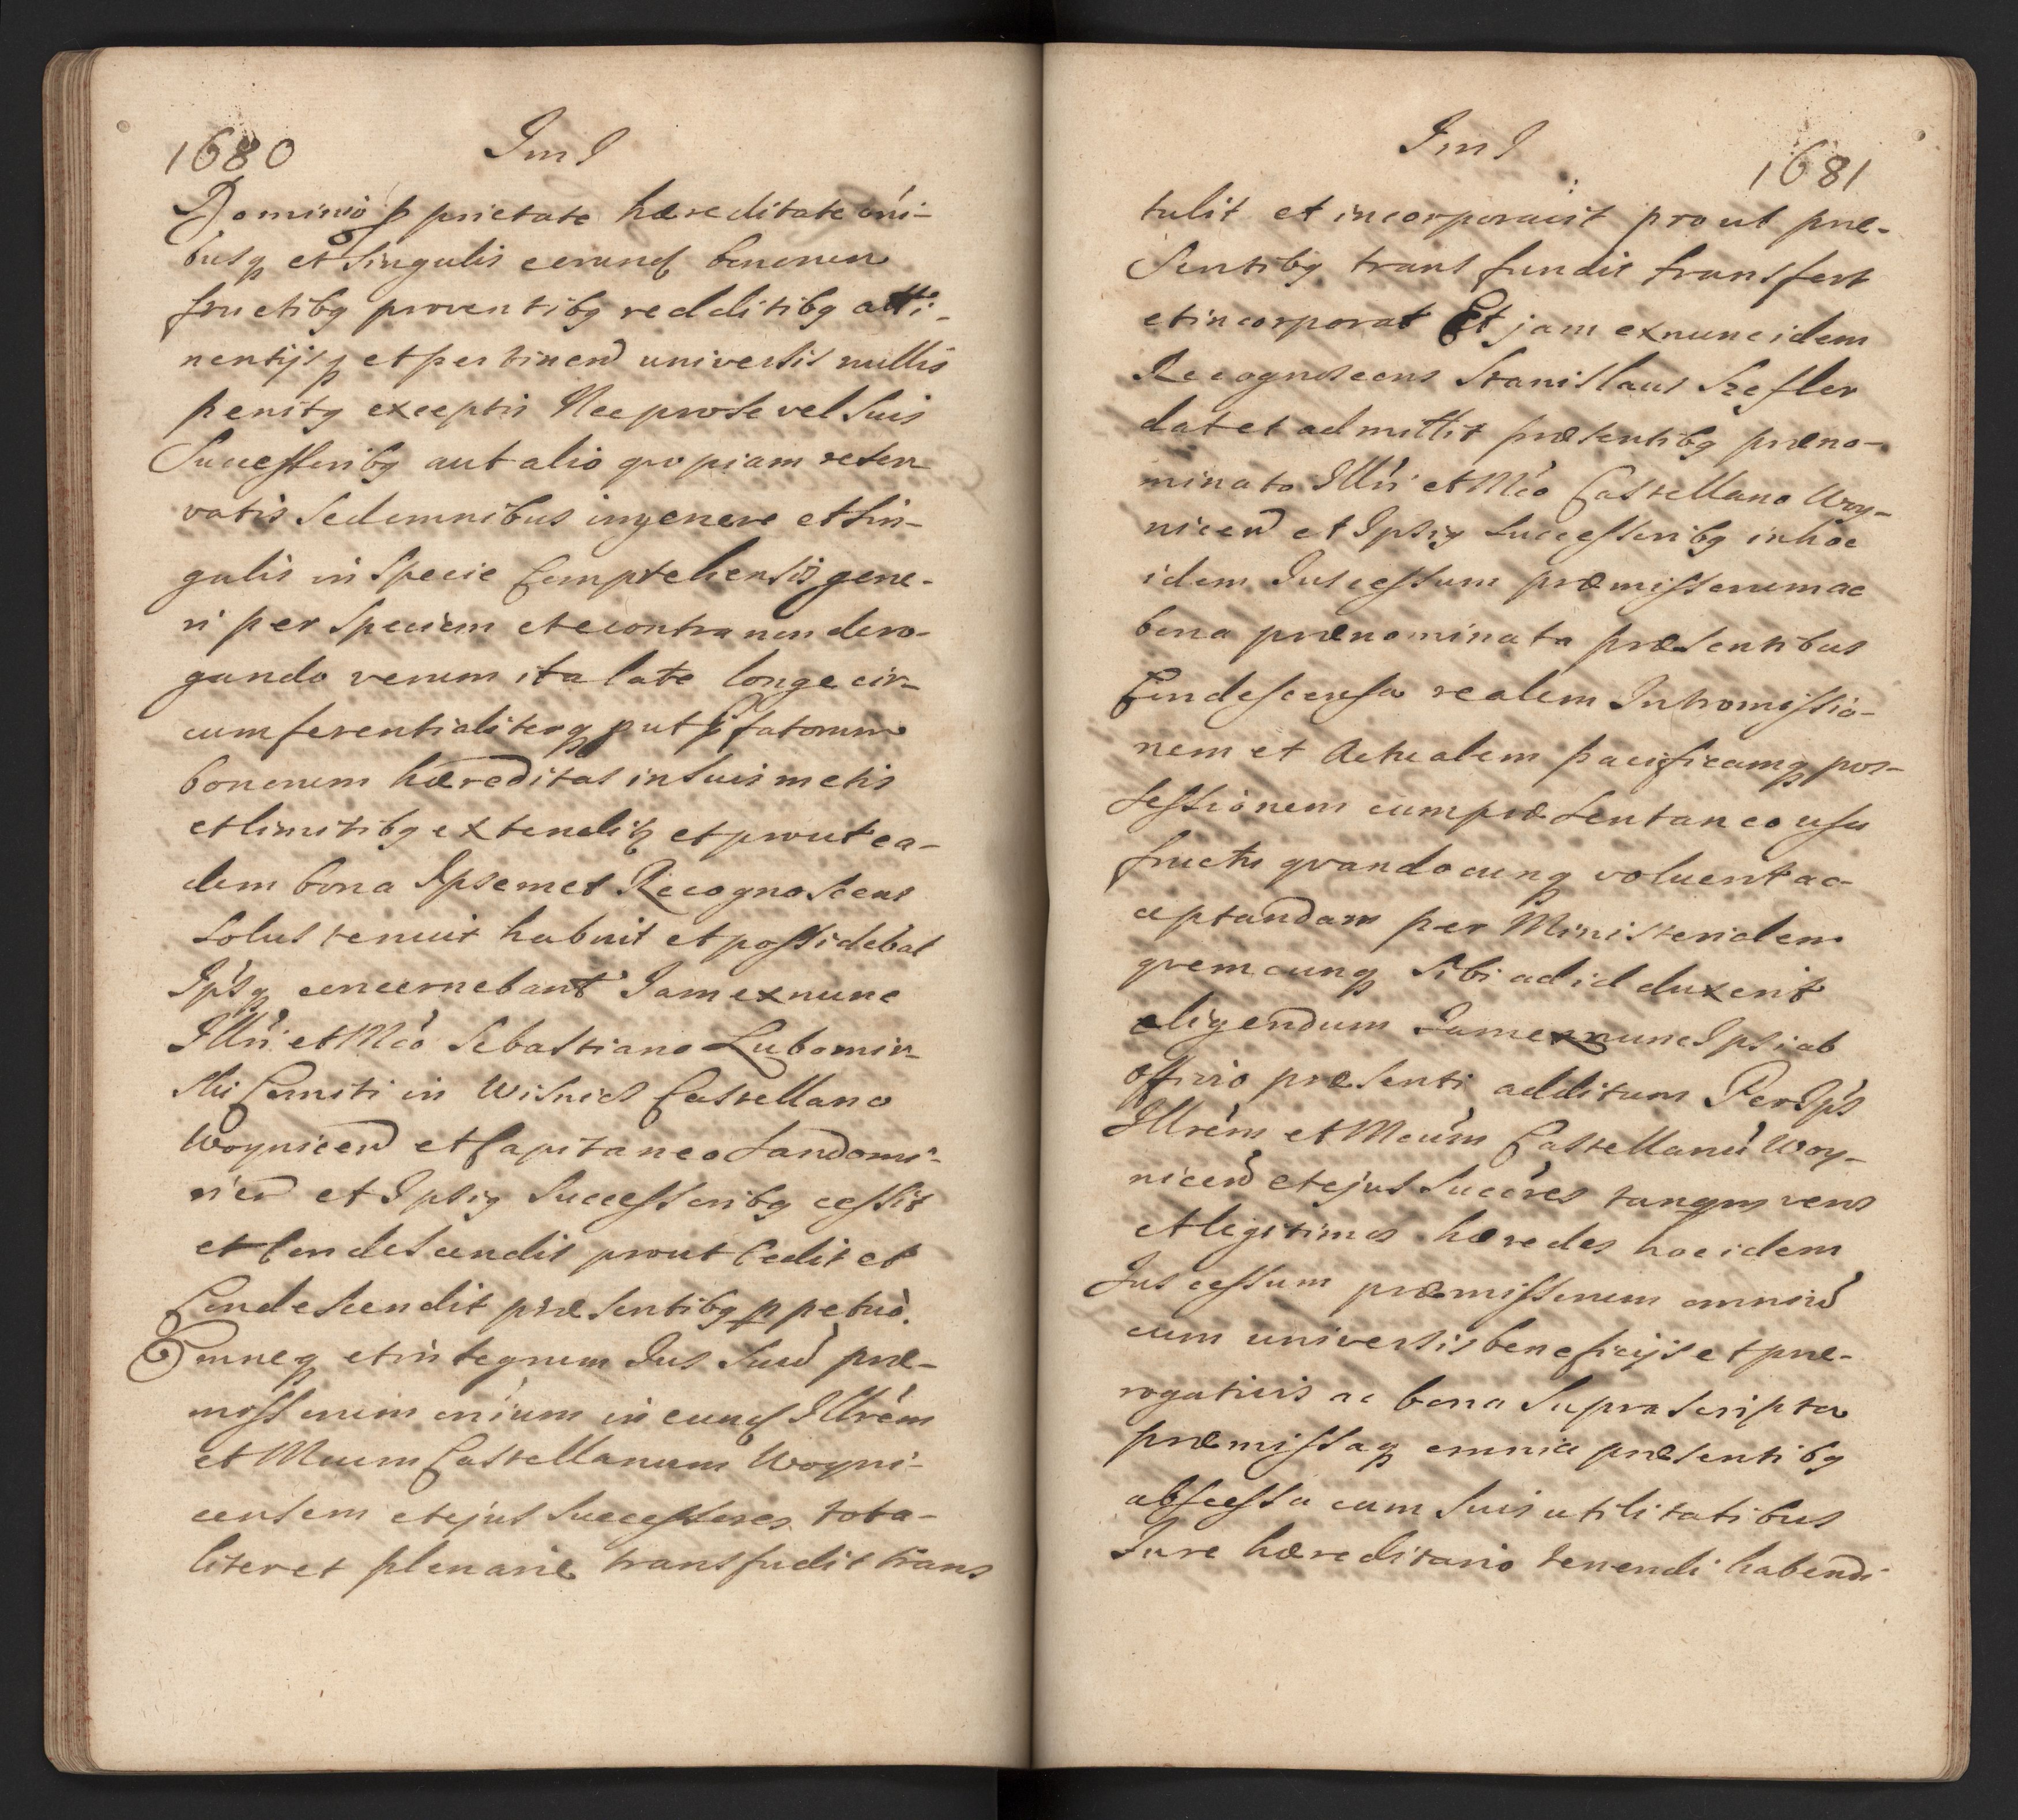 1680 Im I
Dominio pprietate hæreditate oni-
busq et Singulis eorund bonorum
fructibg proventibg redditibg atti-
nentijsq et pertinen universis nullis
penitg exceptis Nec pro se vel Suis
Successoribg aut alio quopiam reser
vatis Sed omnibus in genere et Sin-
gulis in Specie Comprehensis gene-
ri per Speciem et econtra non dero-
gando verum ita late longe cir-
cumferentialiterq put fatorum
bonorum hæreditas in Suis metis
et limitibg extenditg et prout ea-
dem bona Ipsemet Recognoscens
Solus tenuit habuit et possidebat
Ipsq concernebant Iam ex nunc
Illri et Mco Sebastiano Lubomir-
ski Comiti in Wisnicz Castellano
Woynicen et Capitaneo Sandomi-
rien et Ipsig Successoribg cessit
et Condescendit prout Cedit et
Condescendit præsentibg ppetuo.
Omneq et integrum Jus Suu præ-
missorum onium in eund Illrem
et Mcum Castellanum Woyni-
censem et ejus Successores tota-
liter et plenarie transfudit trans
Im I 1681
tulit et incorporavit prout præ-
Sentibg transfundit transfert
et incorporat Et jam ex nunc idem
Recognoscens Stanislaus Szefler
dat et admittit præsentibg præno-
minato Illri et Mco Castellano Woy-
nicen et Ipsig Successoribg in hoc
idem Jus cessum præmissorum ac
bona prænominata præsentibus
Condescensa realem Intromissio-
nem et Actualem pacificamq pos-
sessionem cum præsentaneo usu
fructu quandocunq voluerit ac-
ceptandam per Ministerialem
quemcunq Sibi ad id duxerit
eligendum Iam ex nunc Ipsi ab
officio præsenti additum Per Ips
Illrem et Mcum Castellanu Woy-
nicen et ejus Succeres tanqm veros
et legitimos hæredes hoc idem
Jus cessum præmissorum omniu
cum universis beneficijs et præ-
rogativis ac bona Suprascripta
præmissaq omnia præsentibg
abscessa cum Suis utilitatibus
Jure hæreditario tenendi habendi